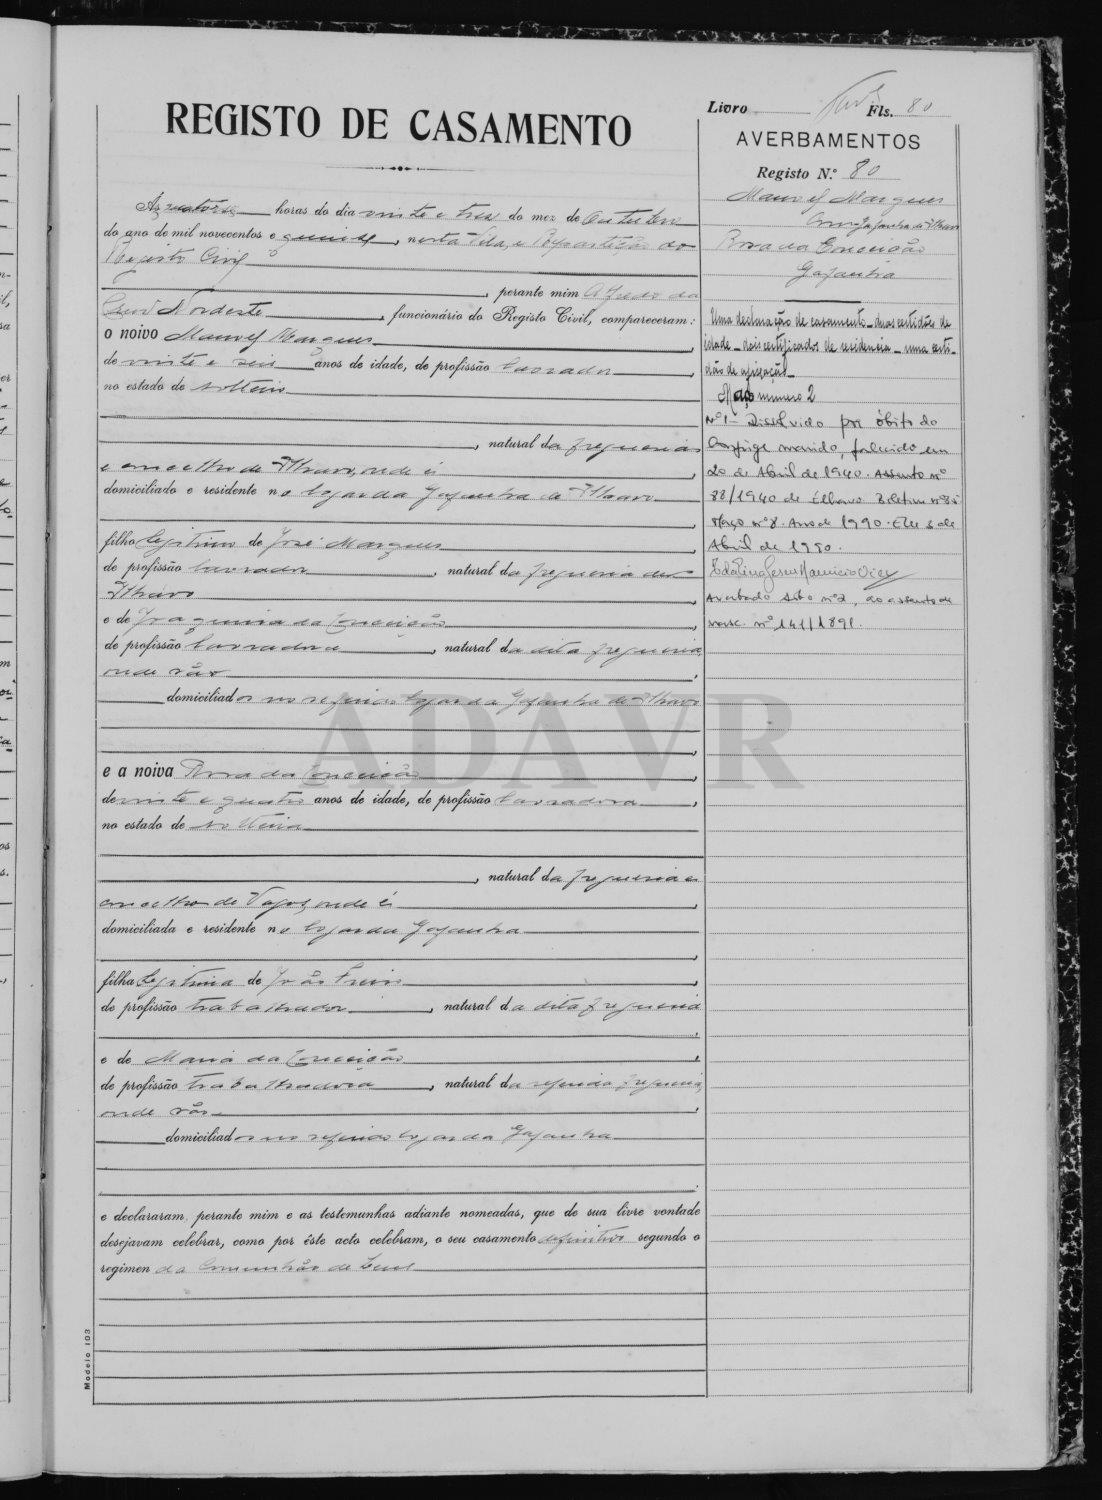 Livro Fls. 80
REGISTO DE CASAMENTO
AVERBAMENTOS
Registo N.º 80
Manoel Marques
Rosa da Conceição
Gafanha
Uma declaração de casamento - duas certidões de
idade - dois certificados de residencia - uma certi-
dão de afixação
Maço numero 2
Nº 1 - Dissolvido por óbito do
conjuge marido, falecido em
20 de Abril de 1940. Assento nº
88/1940 de Ílhavo. Boletim nº 35
Maço nº 8. Ano de 1990. Em 3 de
Abril de 1990.
Averbado sob o nº 2, ao assento de
nasc. nº 141/1891.
Ás horas do dia vinte e tres do mez de Outubro
do ano de mil novecentos e quinze, nesta Vila, e Repartição do
Registo Civil
, perante mim Alfredo da
Nordeste, funcionário do Registo Civil, compareceram:
o noivo Manoel Marques
de vinte e seis anos de idade, de profissão lavrador,
no estado de solteiro
, natural da freguesia
e concelho de Ilhavo, onde é
domiciliado e residente no logar da Gafanha de Ilhavo
filho legitimo de José Marques
de profissão lavrador, natural da freguesia de
Ilhavo
e de Joaquina da Conceição
de profissão lavradora, natural da dita freguesia,
onde são
domiciliados no referido logar da Gafanha de Ilhavo
e a noiva Rosa da Conceição
de vinte e quatro anos de idade, de profissão lavradora,
no estado de solteira
, natural da freguesia e
concelho de Vagos, onde é
domiciliada e residente no logar da Gafanha
filha legitima de João
de profissão trabalhador, natural da dita freguesia
e de Maria da Conceição
de profissão trabalhadora, natural da referida freguesia,
onde são
domiciliados no referido logar da Gafanha
e declararam, perante mim e as testemunhas adiante nomeadas, que de sua livre vontade
desejavam celebrar, como por êste acto celebram, o seu casamento definitivo segundo o
regimen da Comunhão de bens
Modelo 103
ADAVR